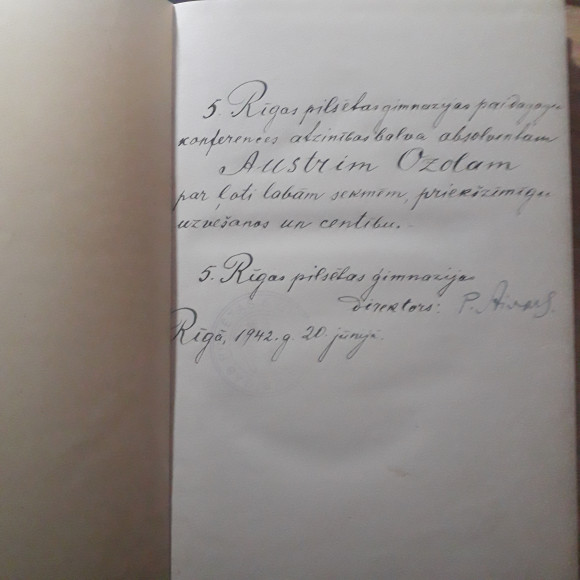 5. Rīgas pilsētas ģimnazijas paidagogu
konferences atzinības balva absolventam
Austrim Ozdam
par ļoti labām sekmēm, priekšzīmīgu
uzvešanos un centību.
5. Rīgas pilsētas ģimnazijas
direktors:
Rīgā, 1942. g. 20. jūnijā.